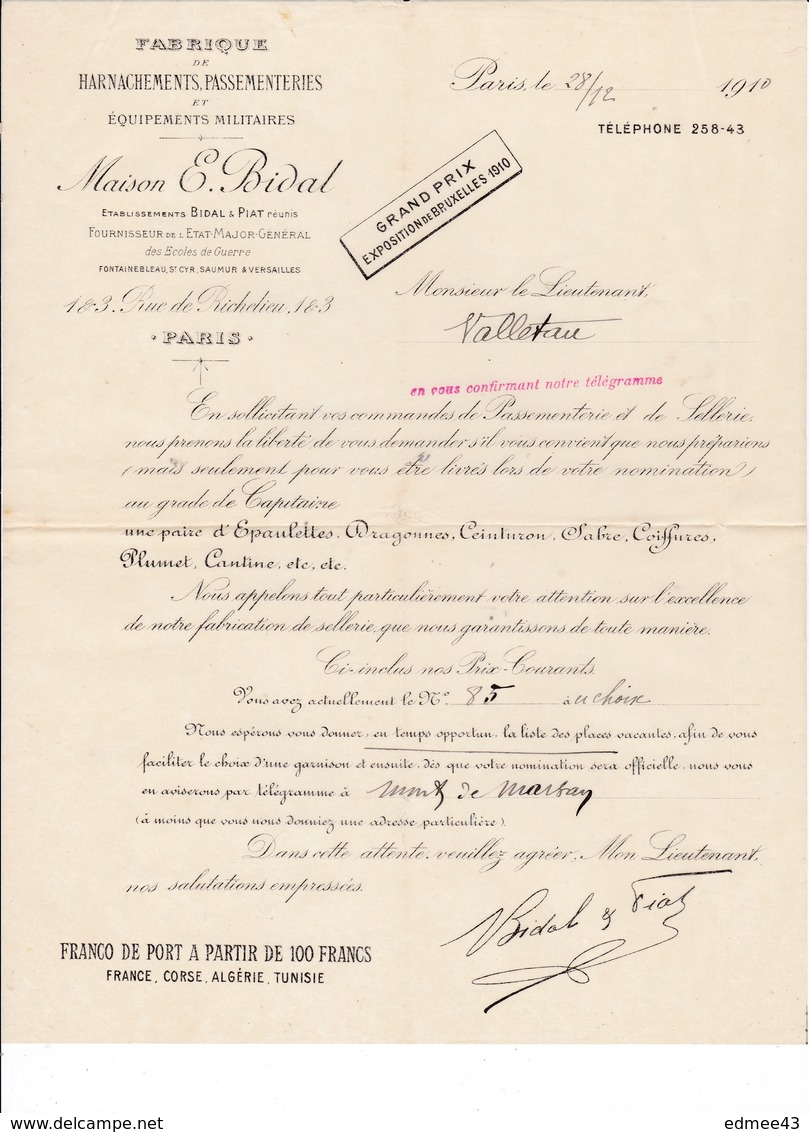 FABRIQUE
DE
HARNACHEMENTS, PASSEMENTERIES
ET
ÉQUIPEMENTS MILITAIRES
Maison E. Bidal
ETABLISSEMENTS BIDAL & PIAT réunis
FOURNISSEUR DE L'ETAT-MAJOR-GÉNÉRAL
des Ecoles de Guerre
FONTAINEBLEAU, ST CYR, SAUMUR & VERSAILLES
1 & 3, Rue de Richelieu, 1 & 3
· PARIS ·
Paris, le 28/12 1910
TÉLÉPHONE 258-43
GRAND PRIX
EXPOSITION DE BRUXELLES 1910
Monsieur le Lieutenant,
Valletau
en vous confirmant notre télégramme
En sollicitant vos commandes de Passementerie et de Sellerie,
nous prenons la liberté de vous demander s'il vous convient que nous préparions
(mais seulement pour vous être livrés lors de votre nomination)
au grade de Capitaine
une paire d'Epaulettes, Dragonnes, Ceinturon, Sabre, Coiffures,
Plumet, Cantine, etc, etc.
Nous appelons tout particulièrement votre attention sur l'excellence
de notre fabrication de sellerie, que nous garantissons de toute manière.
Ci-inclus nos Prix-Courants.
Vous avez actuellement le No. 85 au choix
Nous espérons vous donner, en temps opportun, la liste des places vacantes, afin de vous
faciliter le choix d'une garnison et ensuite, dès que votre nomination sera officielle, nous vous
en aviserons par télégramme à Mont de Marsan
(à moins que vous nous donniez une adresse particulière).
Dans cette attente, veuillez agréer, Mon Lieutenant,
nos salutations empressées.
Bidal & Piat
FRANCO DE PORT A PARTIR DE 100 FRANCS
FRANCE, CORSE, ALGÉRIE, TUNISIE
edmee43